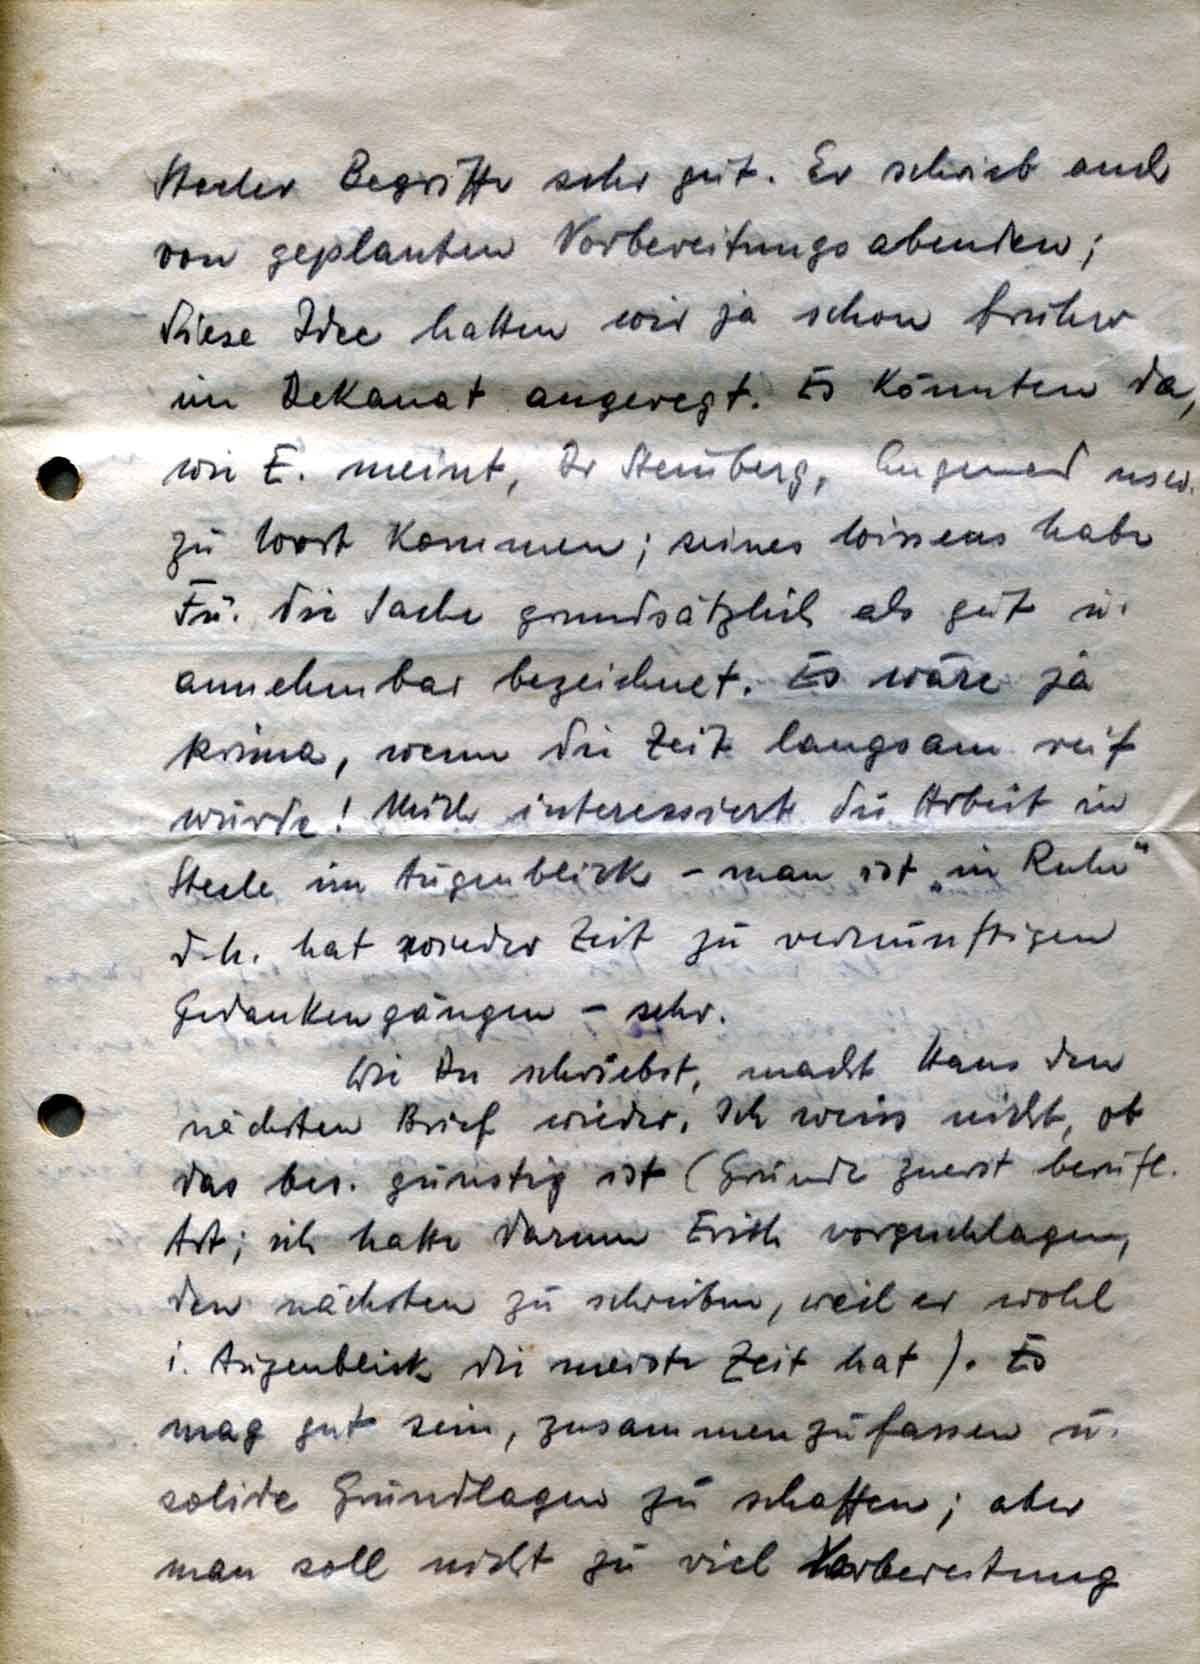 Steeler Begriffe sehr gut. Er schrieb auch
von geplanten Vorbereitungsabenden;
diese Idee hatten wir ja schon früher
im Dekanat angeregt. Es könnten da,
wie E. meint, Dr Sternberg, usw.
zu Wort kommen; seines Wissens habe
Fü. die Sache grundsätzlich als gut u.
annehmbar bezeichnet. Es wäre ja
prima, wenn die Zeit langsam reif
würde! Mich interessiert die Arbeit in
Steele im Augenblick – man ist „in Ruhe"
d.h. hat wieder Zeit zu vernünftigen
Gedankengängen – sehr.
Wie Du schriebst, macht Hans den
nächsten Brief wieder. Ich weiss nicht, ob
das bes. günstig ist (Gründe zuerst berufl.
Art; ich hatte darum Erich vorgeschlagen,
den nächsten zu schreiben, weil er wohl
i. Augenblick die meiste Zeit hat). Es
mag gut sein, zusammenzufassen u.
solide Grundlagen zu schaffen; aber
man soll nicht zu viel Vorbereitung